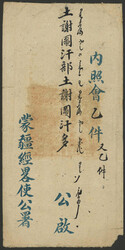 內照會乙件
又乙件
土謝圖汗部土謝圖汗多
公啟
蒙疆經畧使公署